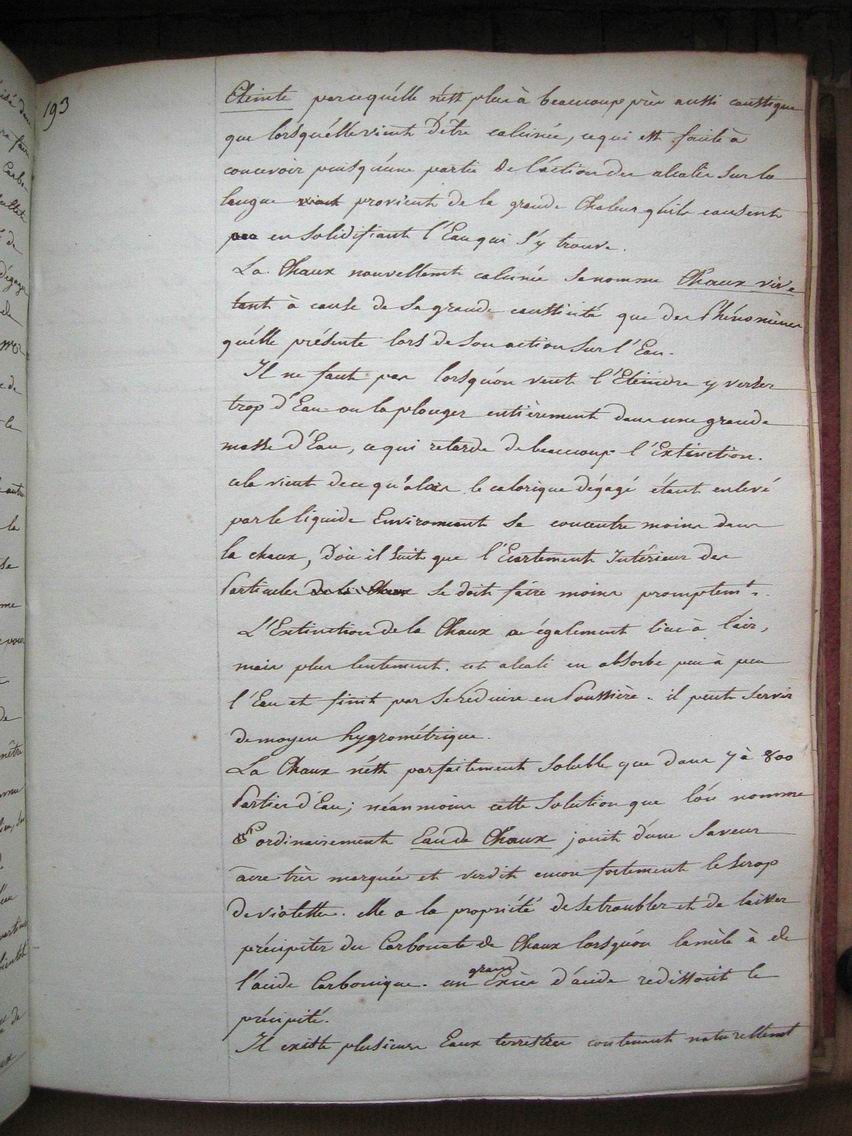 193
Eteinte parcequ'elle n'est plus à beaucoup près aussi caustique
que lorsqu'elle vient d'être calcinée, ce qui est facile à
concevoir puisqu'une partie de l'action des alcalis sur la
langue provient de la grande Chaleur qu'ils causent
en solidifiant l'Eau qui s'y trouve.
La Chaux nouvellemt calcinée se nomme Chaux vive
tant à cause de sa grande causticité que des Phénomènes
qu'elle présente lors de son action sur l'Eau.
Il ne faut pas lorsqu'on veut l'Eteindre y verser
trop d'Eau ou la plonger entièrement dans une grande
masse d'Eau, ce qui retarde de beaucoup l'Extinction.
cela vient de ce qu'alors le calorique dégagé étant enlevé
par le liquide Environnant se concentre moins dans
la chaux, D'où il suit que l'Ecartement Intérieur des
Particules de la Chaux se doit faire moins promptemt.
L'Extinction de la Chaux a également lieu à l'air,
mais plus lentement. cet alcali en absorbe peu à peu
l'Eau et finit par se réduire en Poussière. il peut servir
de moyen hygrométrique.
La Chaux n'est parfaitement soluble que dans 7 à 800
Parties d'Eau; néanmoins cette Solution que l'on nomme
ordinairement Eau de Chaux jouit d'une Saveur
âcre très marquée et verdit encore fortement le sirop
de violette. elle a la propriété de se troubler et de laisser
précipiter du Carbonate de Chaux lorsqu'on la mêle à de
l'acide Carbonique. un grand Excès d'acide redissout le
précipité.
Il existe plusieurs Eaux terrestres contenant naturellement